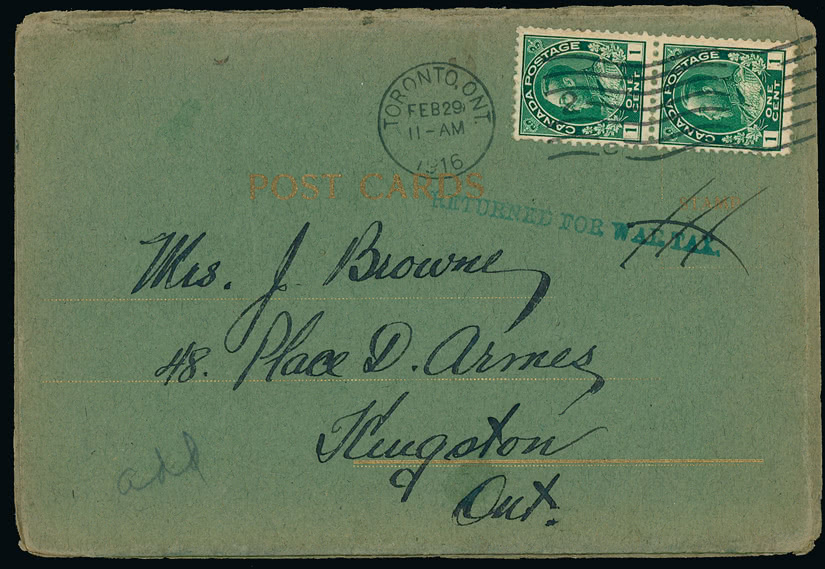 CANADA POSTAGE
1 ONE CENT 1
CANADA POSTAGE
1 ONE CENT 1
TORONTO, ONT.
FEB 29
11-AM
1916
POST CARDS
STAMP
RETURNED FOR WAR TAX.
Mrs. J. Browne
48. Place D. Armes
Kingston
Ont.
add